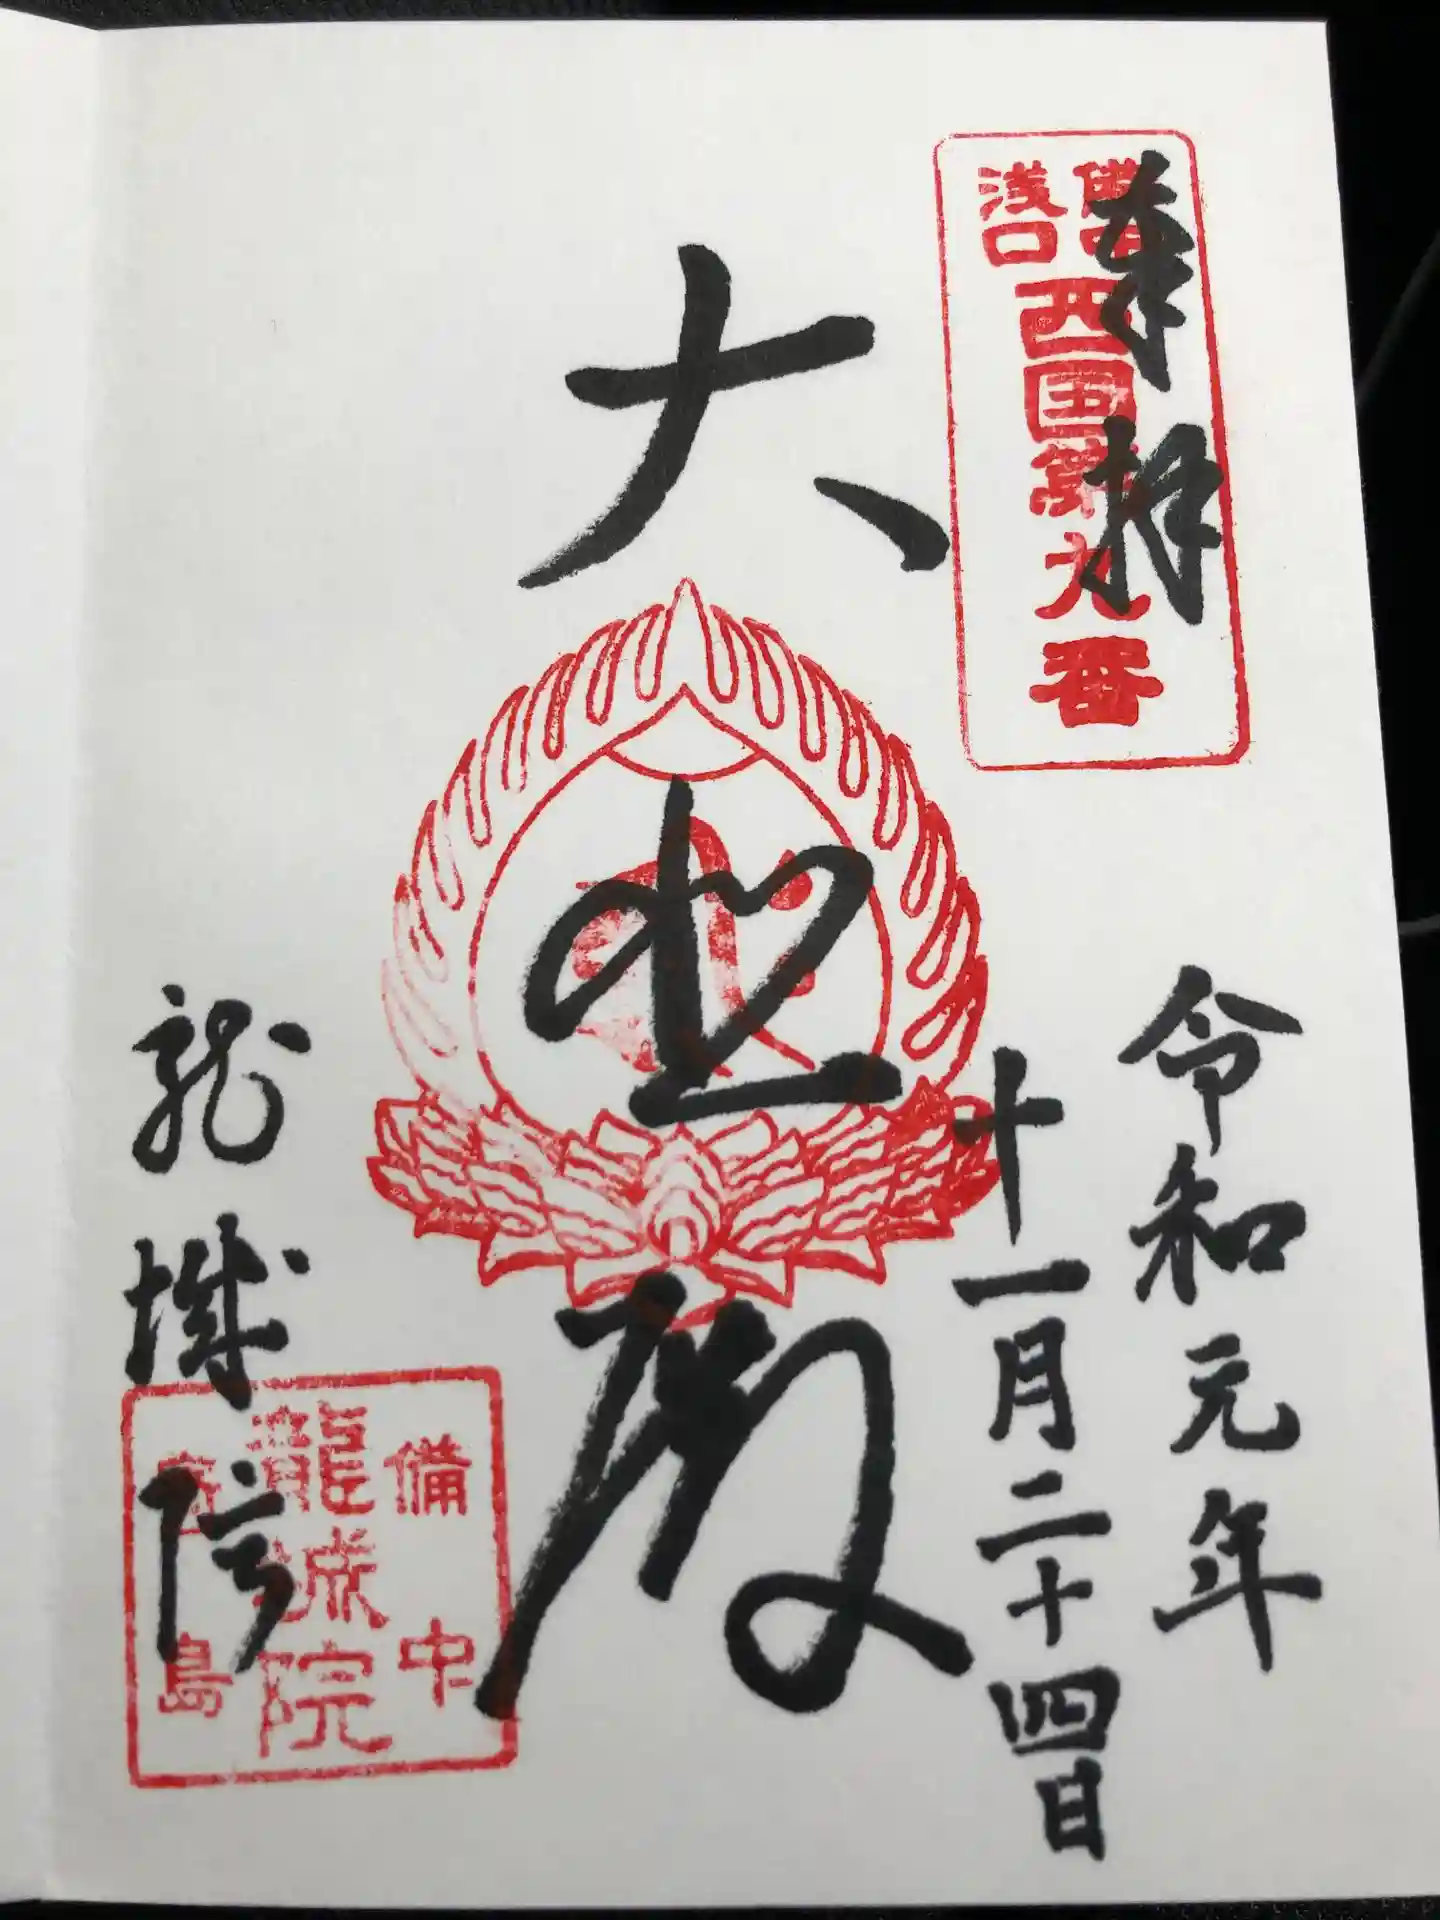 奉拝
備中
浅口
西国第九番
令和元年
十一月二十四日
大悲殿
龍城院
備中
龍城院
寄島